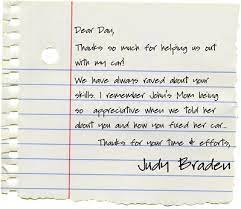 Dear Dan,
Thanks so much for helping us out
with my car!
We have always raved about your
skills. I remember John's Mom being
so appreciative when we told her
about you and how you fixed her car...
Thanks for your time & efforts,
Judy Braden